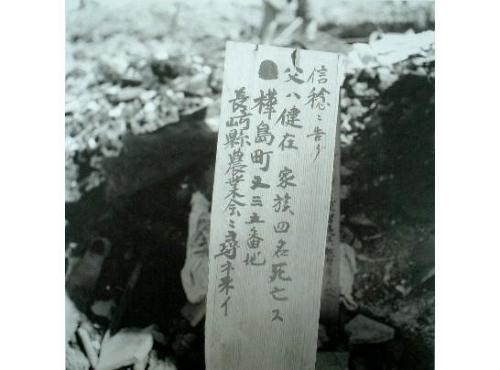 信稔ニ告グ
父ハ健在 家族四名死亡ス
樺島町 三五番地
長崎縣農業会ニ尋ネ来イ